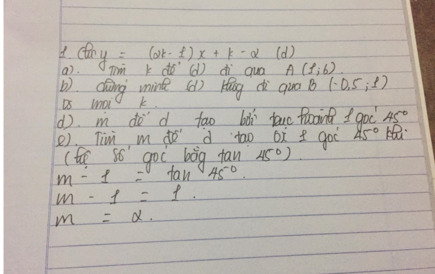 1. Cho y = (2k-1)x + k - 2 (d)
a). Tìm k để (d) đi qua A (1;6).
b). chứng minh (d) không đi qua B (-0,5;1)
Vs mọi k.
d) m để d tạo bởi trục hoành 1 góc 45°
e) Tìm m để d tạo Ox 1 góc 45° khi
(hệ số góc bằng tan 45°).
m - 1 = tan 45°
m - 1 = 1.
m = 2.